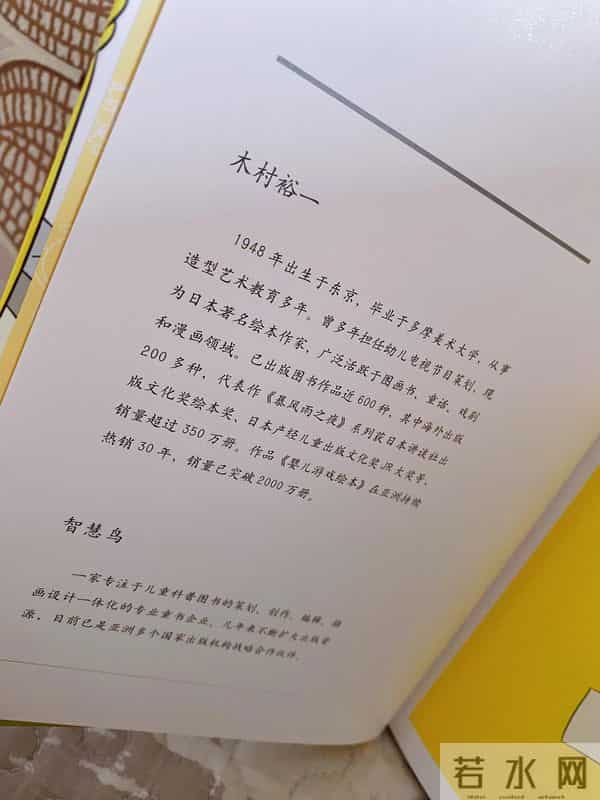 木村裕一
1948年出生于东京，毕业于多摩美术大学，从事
造型艺术教育多年。曾多年担任幼儿电视节目策划，现
为日本著名绘本作家，广泛活跃于图画书、童话、戏剧
和漫画领域。已出版图书作品近600种，其中海外出版
200多种，代表作《暴风雨之夜》系列获日本讲谈社出
版文化奖绘本奖、日本产经儿童出版文化奖JR大奖等，
销量超过350万册。作品《婴儿游戏绘本》在亚洲持续
热销30年，销量已突破2000万册。
智慧鸟
一家专注于儿童科普图书的策划、创作、编辑、插
画设计一体化的专业童书企业，几年来不断扩大出版资
源，目前已是亚洲多个国家出版机构的战略合作伙伴。
若水网